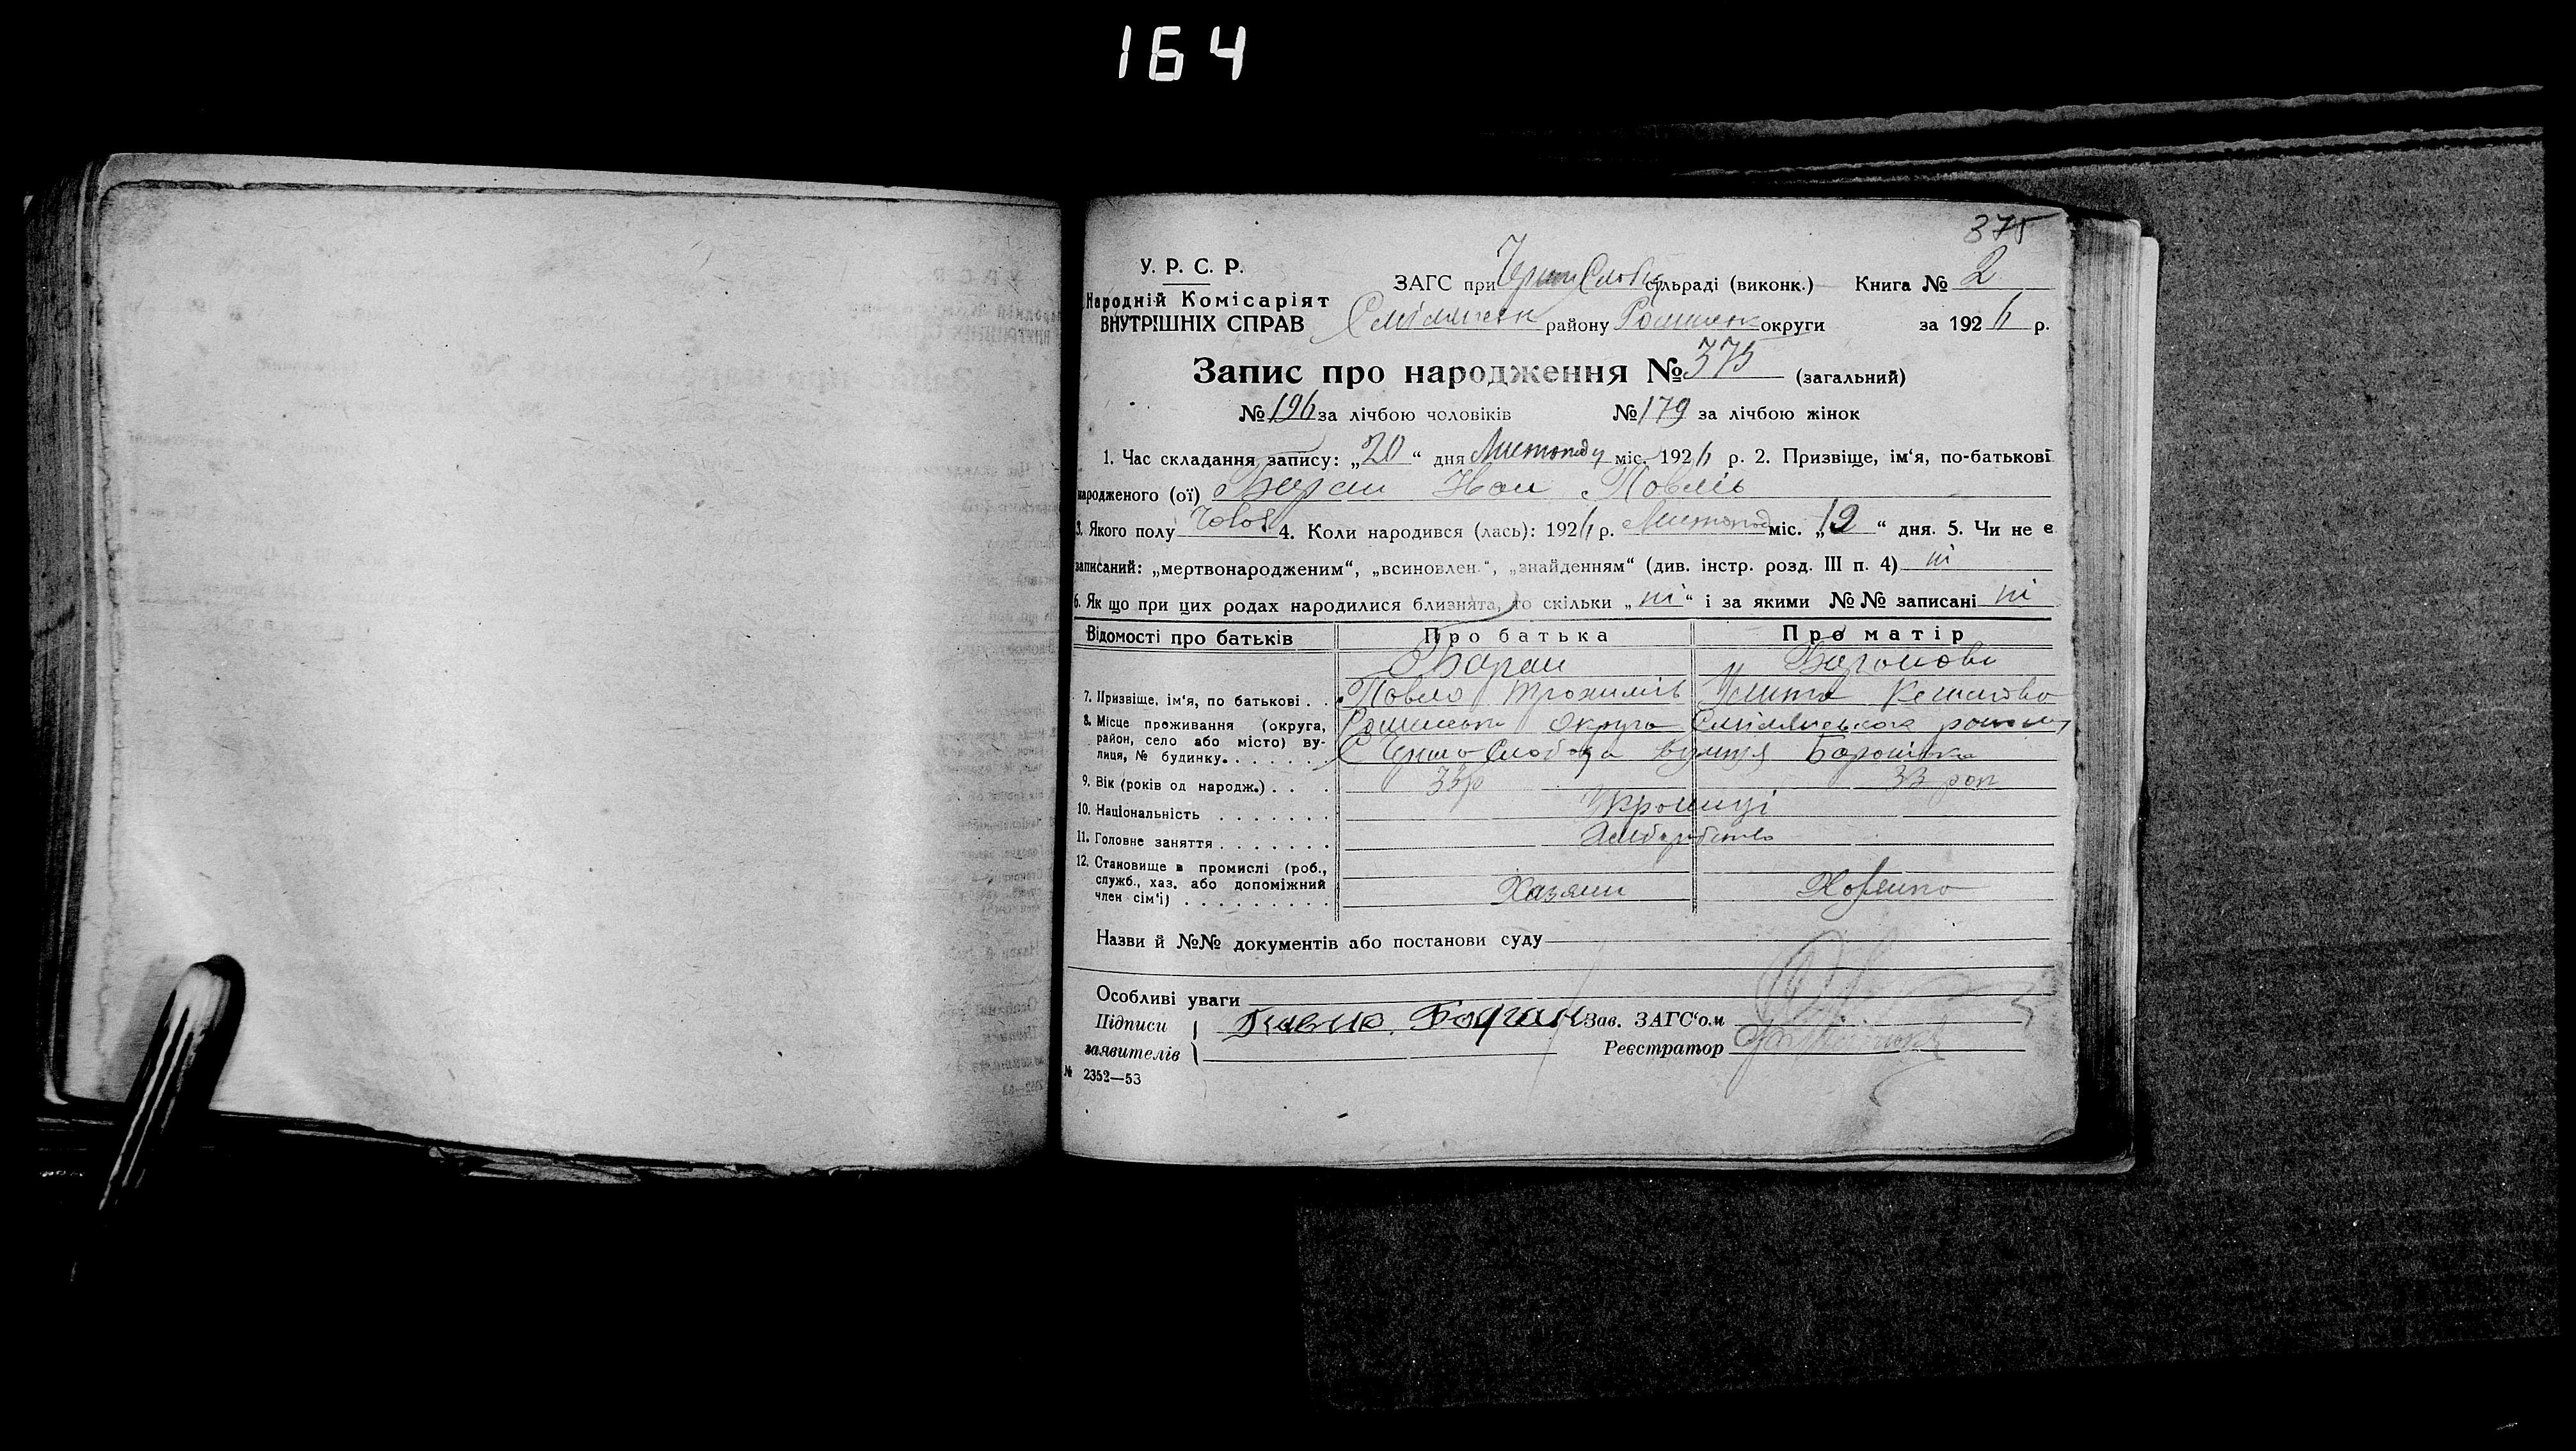 164
375
У. Р. С. Р.
Народній Комісаріят
ВНУТРІШНІХ СПРАВ
ЗАГС при сільраді (виконк.) Книга № 2
району округи за 1926 р.
Запис про народження № 375 (загальний)
№ 196 за лічбою чоловіків № 179 за лічбою жінок
1. Час складання запису: „20“ дня Листопаду міс. 1926 р. 2. Призвіще, ім‘я, по-батькові
народженого (ої) Баран Іван Павлів
3. Якого полу Чолов 4. Коли народився (лась): 1926 р. Листопад міс. „19“ дня. 5. Чи не є
записаний: „мертвонародженим“, „всиновлен.“, „знайденням“ (див. інстр. розд. III п. 4) ні
6. Як що при цих родах народилися близнята, то скільки „ні“ і за якими №№ записані ні
Відомості про батьків Про батька Про матір
Баран Баранова
7. Призвіще, ім‘я, по батькові . . Павло Трохимів
8. Місце проживання (округа, район, село або місто) вулиця, № будинку. Роменська округа Смілянського району
Слобода вулиця
9. Вік (років од народж.) . . . 33р 33 рок
10. Національність . . . . . . . Українці
11. Головне заняття . . . . . . . Хліборобство
12. Становище в промислі (роб.,
служб., хаз. або допоміжний
член сім‘ї) . . . . . . . . . Хазяїн Хазяйка
Назви й №№ документів або постанови суду
Особливі уваги
Підписи Павло Баран Зав. ЗАГС‘ом
заявителів Реєстратор
№ 2352—53